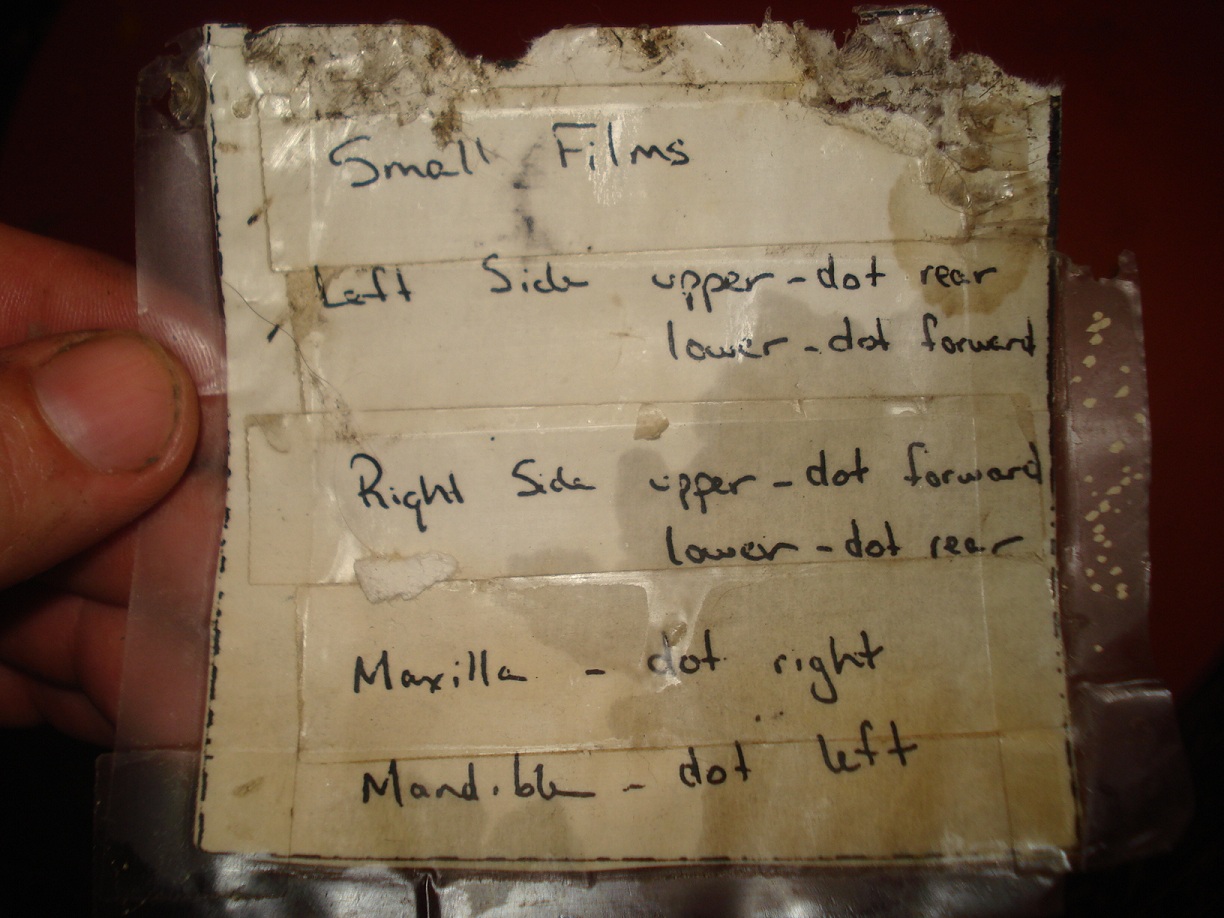 Small Films
Left Side upper - dot rear
lower - dot forward
Right Side upper - dot forward
lower - dot rear
Maxilla - dot right
Mandible - dot left